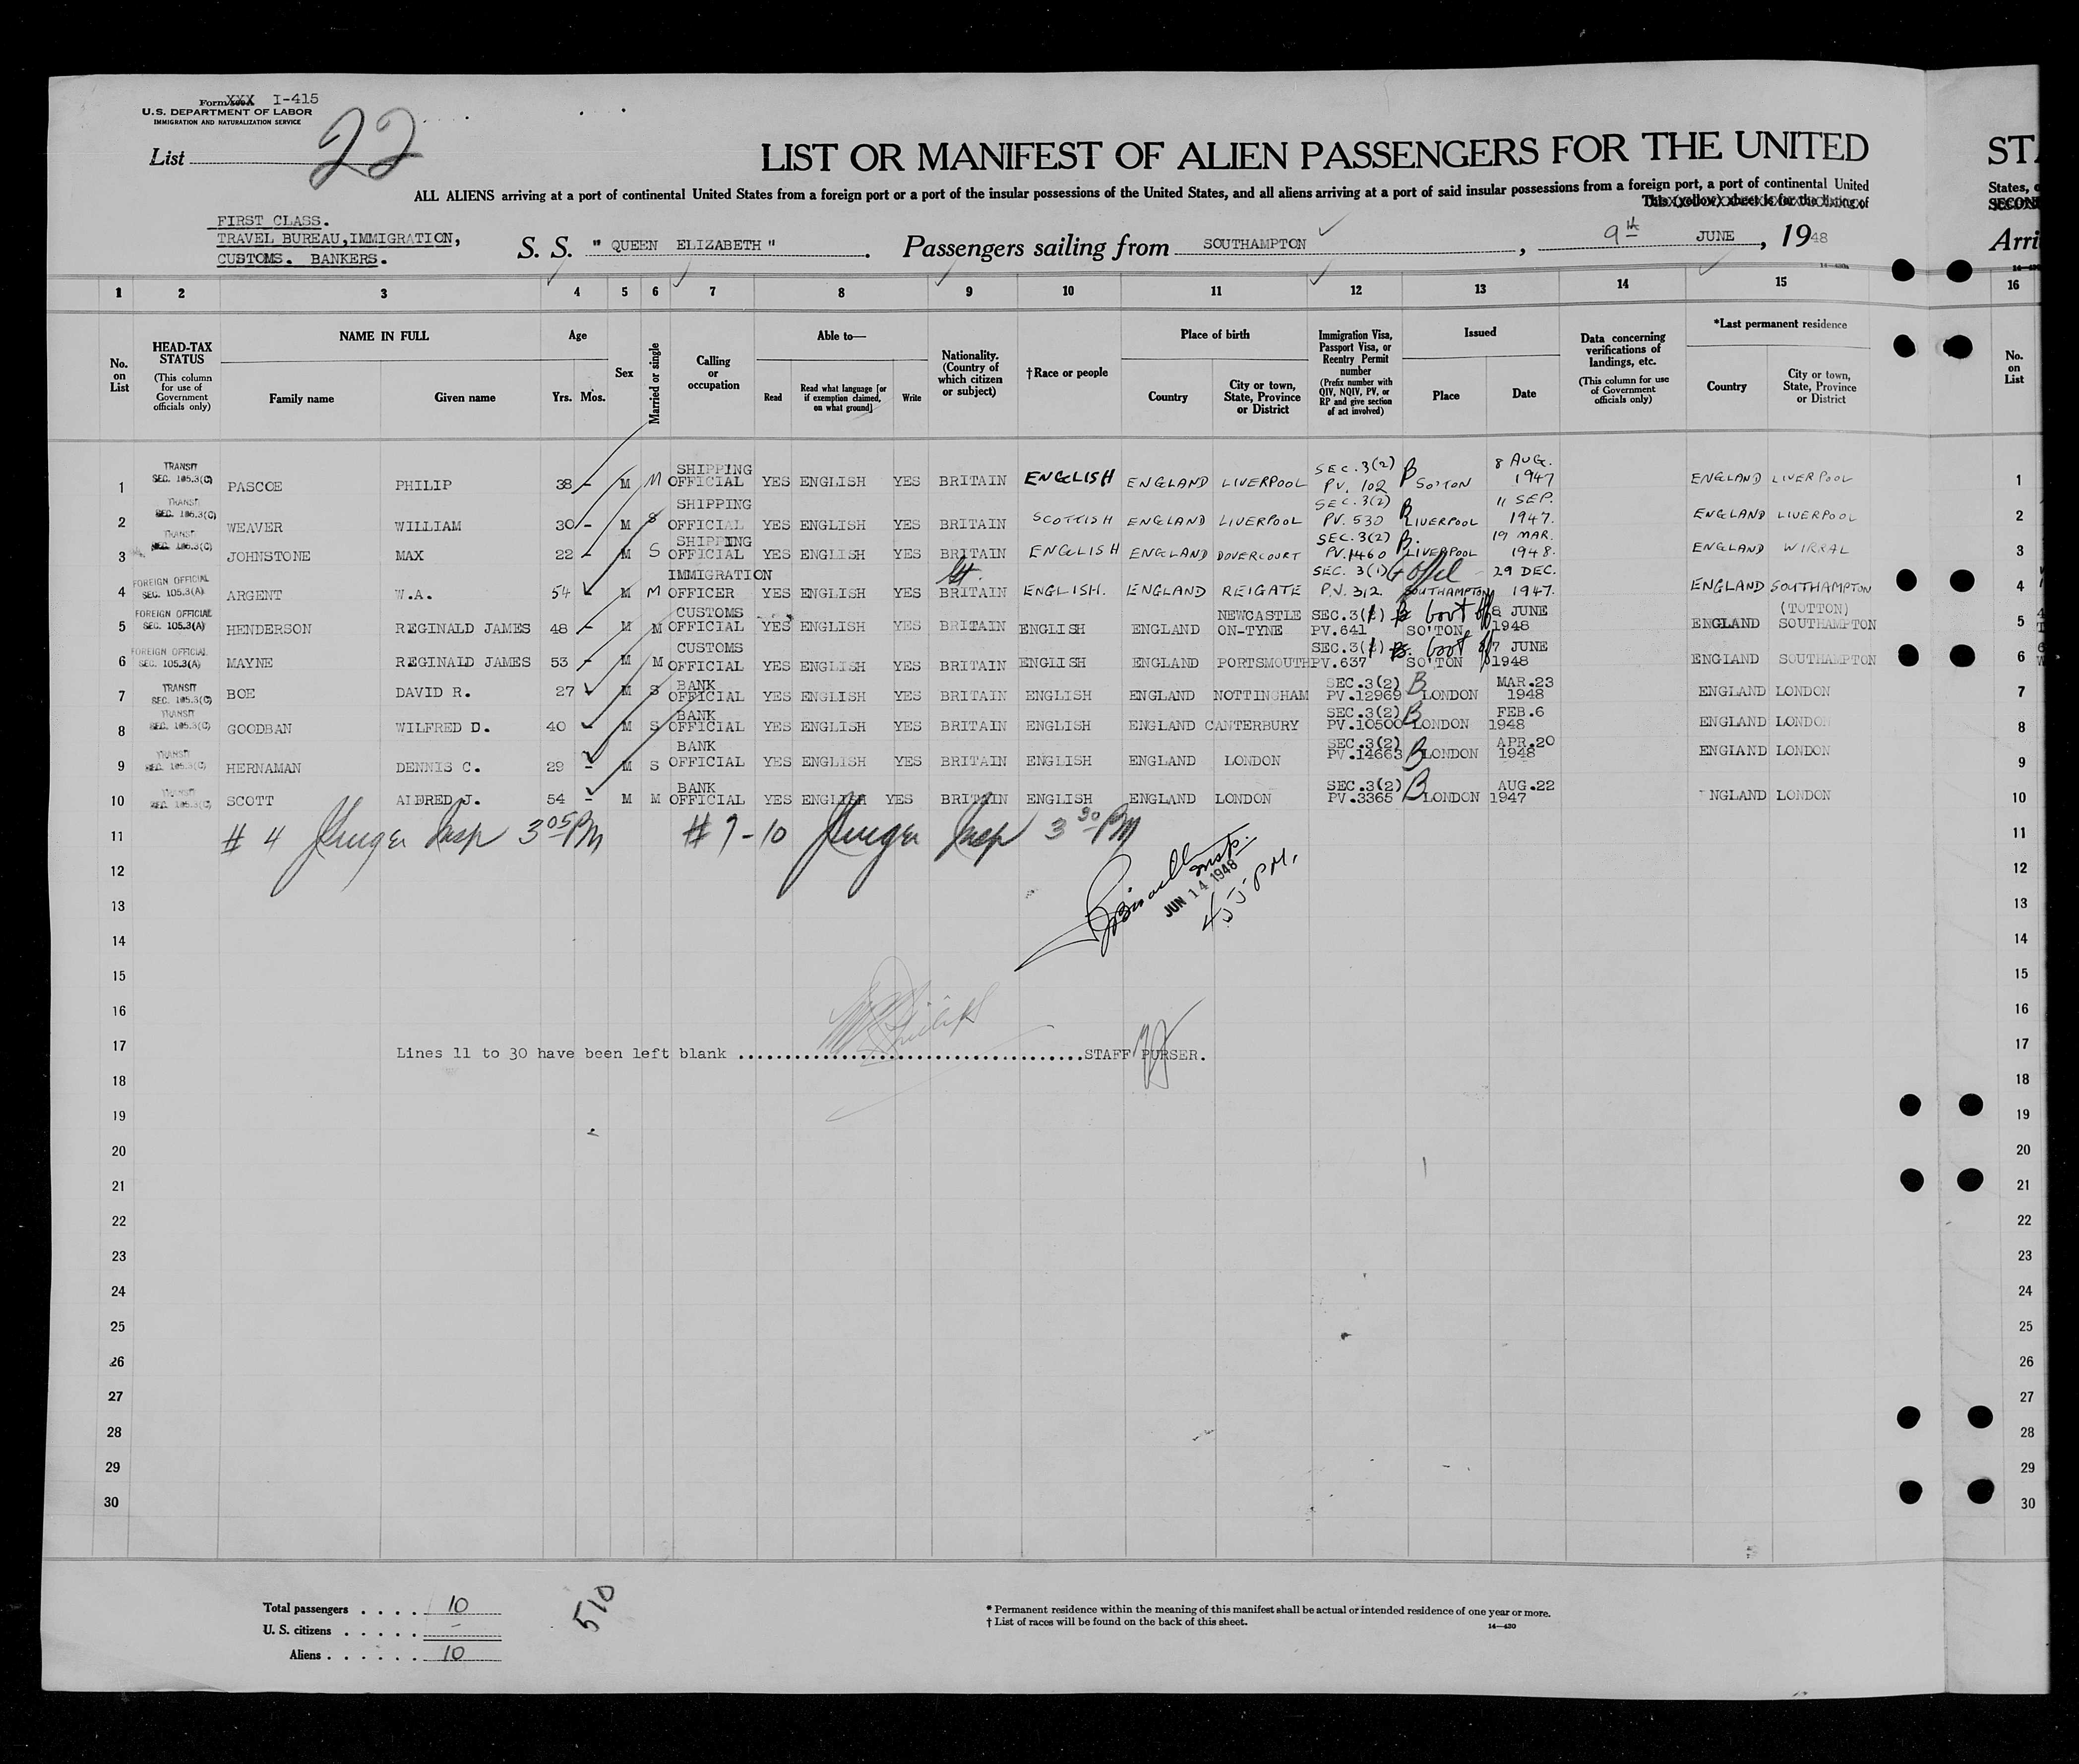 Form XXX I-415
U.S. DEPARTMENT OF LABOR
IMMIGRATION AND NATURALIZATION SERVICE
List 22
LIST OR MANIFEST OF ALIEN PASSENGERS FOR THE UNITED
STA
ALL ALIENS arriving at a port of continental United States from a foreign port or a port of the insular possessions of the United States, and all aliens arriving at a port of said insular possessions from a foreign port, a port of continental United
States, o
This (yellow) sheet is for the listing of
SECOND
FIRST CLASS.
TRAVEL BUREAU, IMMIGRATION,
CUSTOMS. BANKERS.
S. S. " QUEEN ELIZABETH ". Passengers sailing from SOUTHAMPTON, 9th JUNE, 1948
Arri
1 2 3 4 5 6 7 8 9 10 11 12 13 14 15 16
No. on List
HEAD-TAX STATUS (This column for use of Government officials only)
NAME IN FULL
Family name Given name
Age
Yrs. Mos.
Sex
Married or single
Calling or occupation
Able to—
Read Read what language [or if exemption claimed, on what ground] Write
Nationality. (Country of which citizen or subject)
†Race or people
Place of birth
Country City or town, State, Province or District
Immigration Visa, Passport Visa, or Reentry Permit number (Prefix number with QIV, NQIV, PV, or RP and give section of act involved)
Issued
Place Date
Data concerning verifications of landings, etc. (This column for use of Government officials only)
*Last permanent residence
Country City or town, State, Province or District
No. on List
1 TRANSIT SEC. 105.3(C) PASCOE PHILIP 38 - M M SHIPPING OFFICIAL YES ENGLISH YES BRITAIN ENGLISH ENGLAND LIVERPOOL SEC. 3(2) PV. 102 B SO'TON 8 AUG. 1947 ENGLAND LIVERPOOL 1
2 TRANSIT SEC. 105.3(C) WEAVER WILLIAM 30 - M S SHIPPING OFFICIAL YES ENGLISH YES BRITAIN SCOTTISH ENGLAND LIVERPOOL SEC. 3(2) PV. 530 B LIVERPOOL 11 SEP. 1947. ENGLAND LIVERPOOL 2
3 TRANSIT SEC. 105.3(C) JOHNSTONE MAX 22 - M S SHIPPING OFFICIAL YES ENGLISH YES BRITAIN ENGLISH ENGLAND DOVERCOURT SEC. 3(2) PV. 1460 B. LIVERPOOL 19 MAR. 1948. ENGLAND WIRRAL 3
4 FOREIGN OFFICIAL SEC. 105.3(A) ARGENT W.A. 54 M M IMMIGRATION OFFICER YES ENGLISH YES BRITAIN ENGLISH. ENGLAND REIGATE SEC. 3(1) P.V. 312 SOUTHAMPTON 29 DEC. 1947. ENGLAND SOUTHAMPTON (TOTTON) 4
5 FOREIGN OFFICIAL SEC. 105.3(A) HENDERSON REGINALD JAMES 48 - M M CUSTOMS OFFICIAL YES ENGLISH YES BRITAIN ENGLISH ENGLAND NEWCASTLE ON-TYNE SEC.3(1) PV.641 Govt off SO'TON 8 JUNE 1948 ENGLAND SOUTHAMPTON 5
6 FOREIGN OFFICIAL SEC. 105.3(A) MAYNE REGINALD JAMES 53 - M M CUSTOMS OFFICIAL YES ENGLISH YES BRITAIN ENGLISH ENGLAND PORTSMOUTH SEC.3(1) PV.637 Govt off SO'TON 7 JUNE 1948 ENGLAND SOUTHAMPTON 6
7 TRANSIT SEC. 105.3(C) BOE DAVID R. 27 M S BANK OFFICIAL YES ENGLISH YES BRITAIN ENGLISH ENGLAND NOTTINGHAM SEC.3(2) PV.12969 B LONDON MAR.23 1948 ENGLAND LONDON 7
8 TRANSIT SEC. 105.3(C) GOODBAN WILFRED D. 40 M S BANK OFFICIAL YES ENGLISH YES BRITAIN ENGLISH ENGLAND CANTERBURY SEC.3(2) PV.10500 B LONDON FEB.6 1948 ENGLAND LONDON 8
9 TRANSIT SEC. 105.3(C) HERNAMAN DENNIS C. 29 - M S BANK OFFICIAL YES ENGLISH YES BRITAIN ENGLISH ENGLAND LONDON SEC.3(2) PV.14663 B LONDON APR.20 1948 ENGLAND LONDON 9
10 TRANSIT SEC. 105.3(C) SCOTT ALDRED J. 54 - M M BANK OFFICIAL YES ENGLISH YES BRITAIN ENGLISH ENGLAND LONDON SEC.3(2) PV.3365 B LONDON AUG.22 1947 NGLAND LONDON 10
11 # 4 Insp 3 05 PM # 7-10 Insp 3 30 PM 11
12 Insp. 12
13 JUN 14 1948 4 55 P.M. 13
14 14
15 15
16 16
17 Lines 11 to 30 have been left blank STAFF PURSER. 17
18 18
19 19
20 20
21 21
22 22
23 23
24 24
25 25
26 26
27 27
28 28
29 29
30 30
Total passengers .... 10
U. S. citizens ..... -
Aliens ...... 10
510
* Permanent residence within the meaning of this manifest shall be actual or intended residence of one year or more.
† List of races will be found on the back of this sheet.
14—430